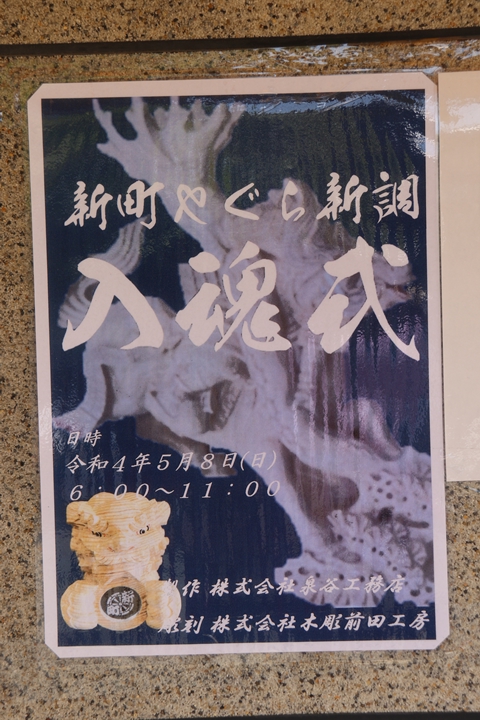 新町やぐら新調
入魂式
日時
令和4年5月8日(日)
6：00～11：00
作 株式会社泉谷工務店
彫刻 株式会社木彫前田工房